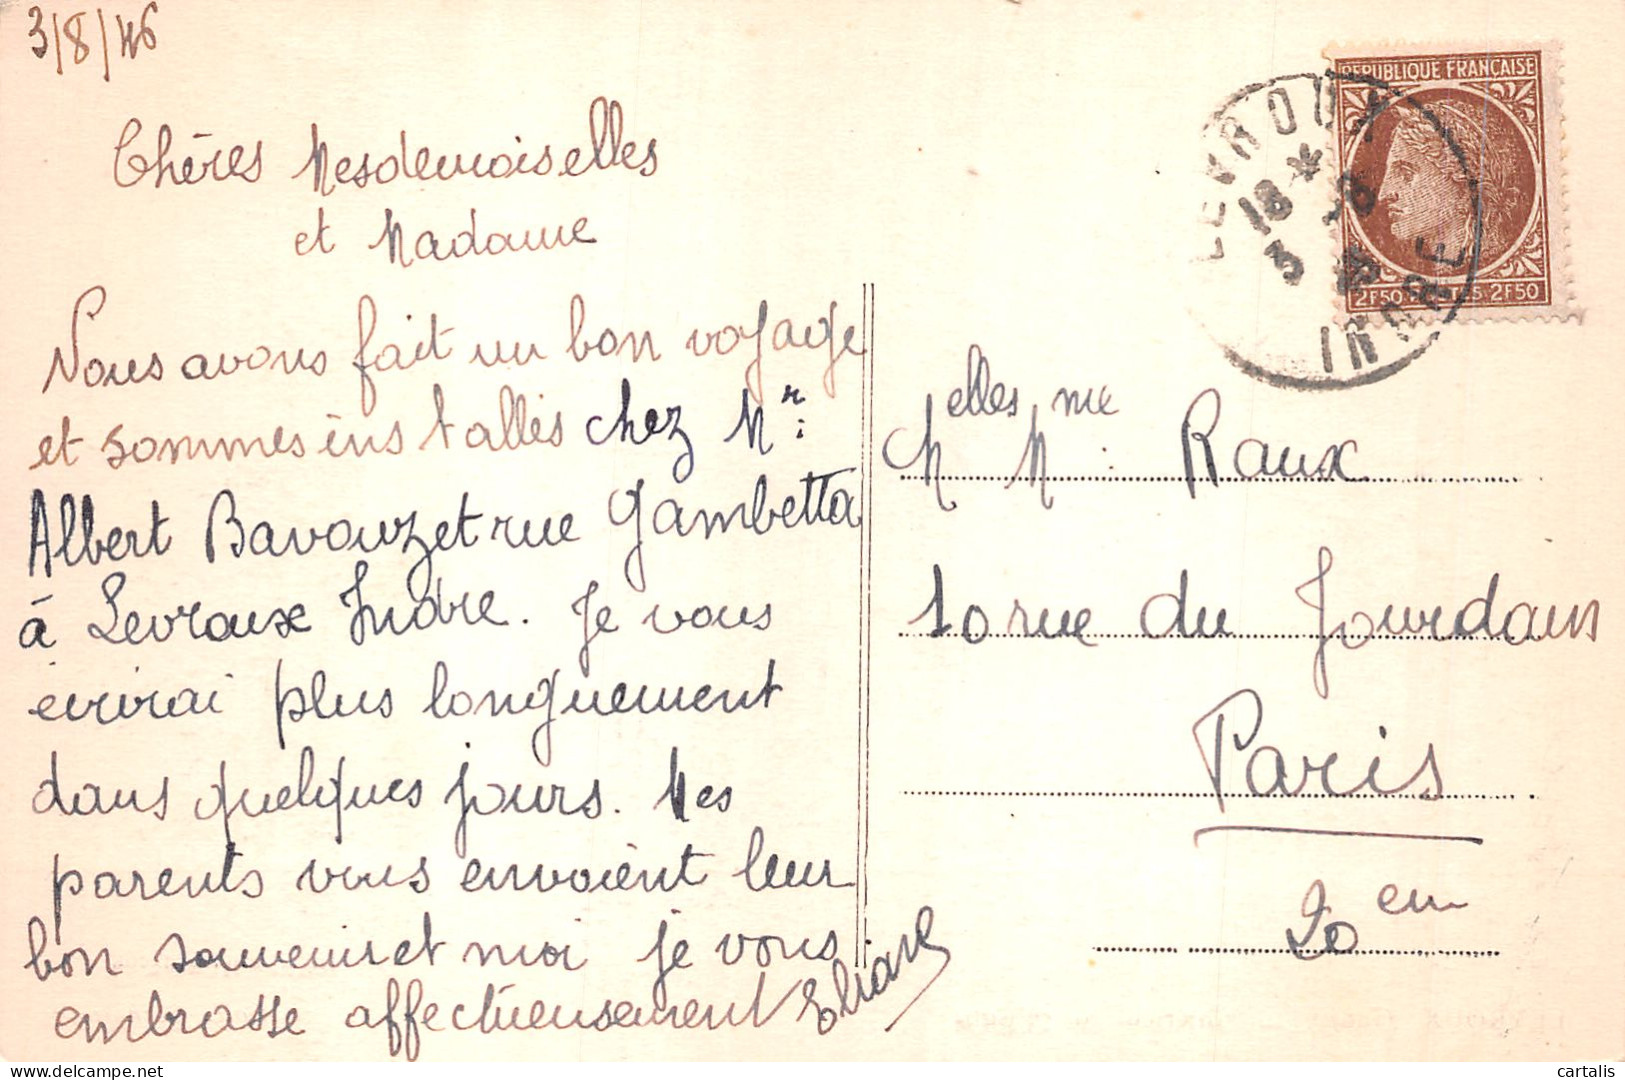 3/8/46
Chères Mesdemoiselles
et Madame
Nous avons fait un bon voyage
et sommes installés chez Mr
Albert Bavouzet rue Gambetta
à Levroux Indre. Je vous
écrirai plus longuement
dans quelques jours. Mes
parents vous envoient leur
bon souvenir et moi je vous
embrasse affectueusement Eliane
REPUBLIQUE FRANÇAISE
2F50 2F50
LEVROUX
18 *
3
INDRE
Melles Mme Raux
10 rue du Jourdain
Paris
20 em
delcampe.net
cartalis